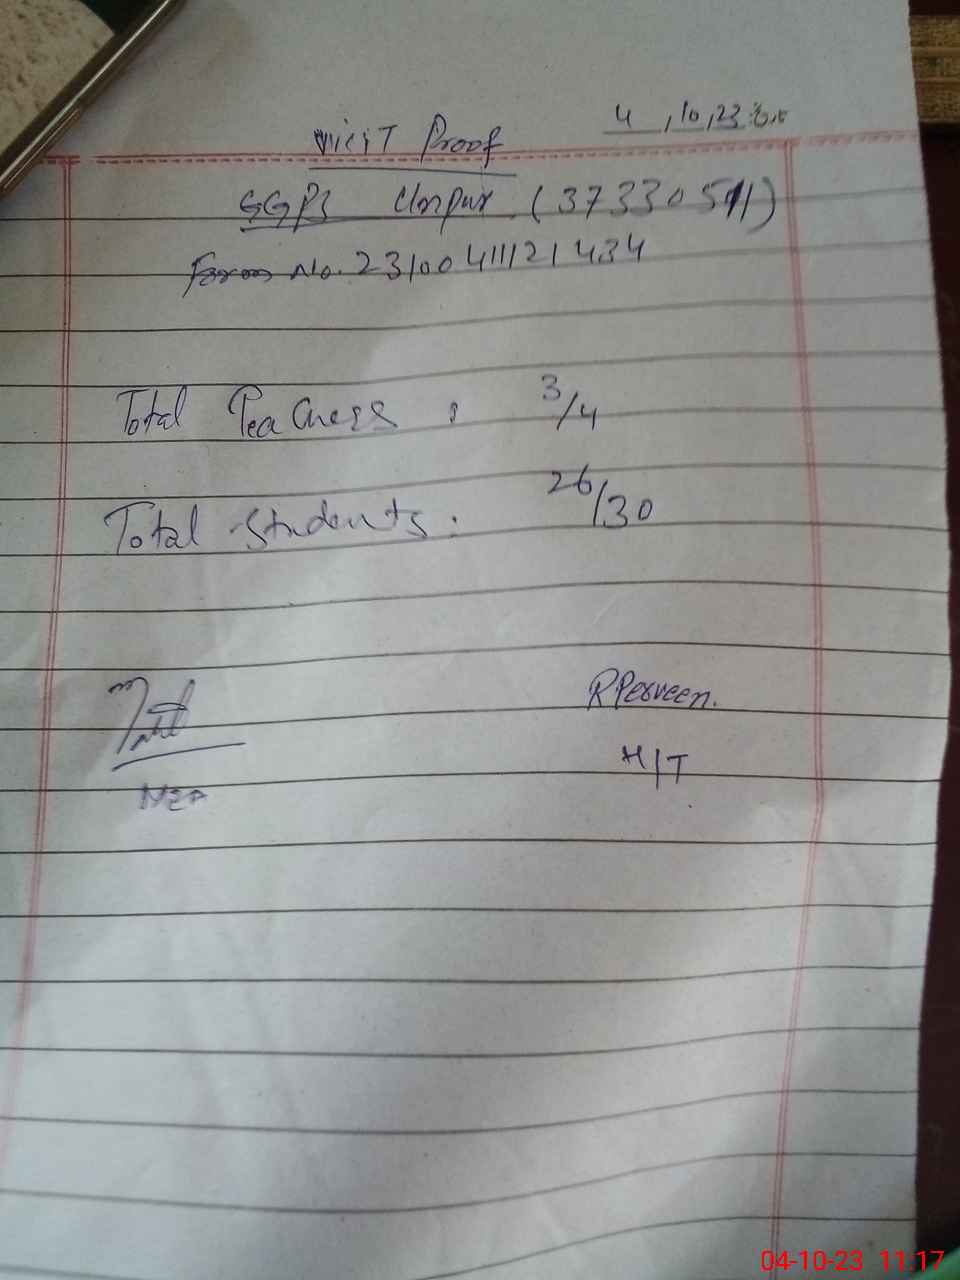 4,10,23
Visit Proof
GGPS Umpur (37330511)
Form No. 23100411121434
Total Teachers : 3/4
Total Students : 26/30
RPerveen.
H/T
04-10-23 11:17